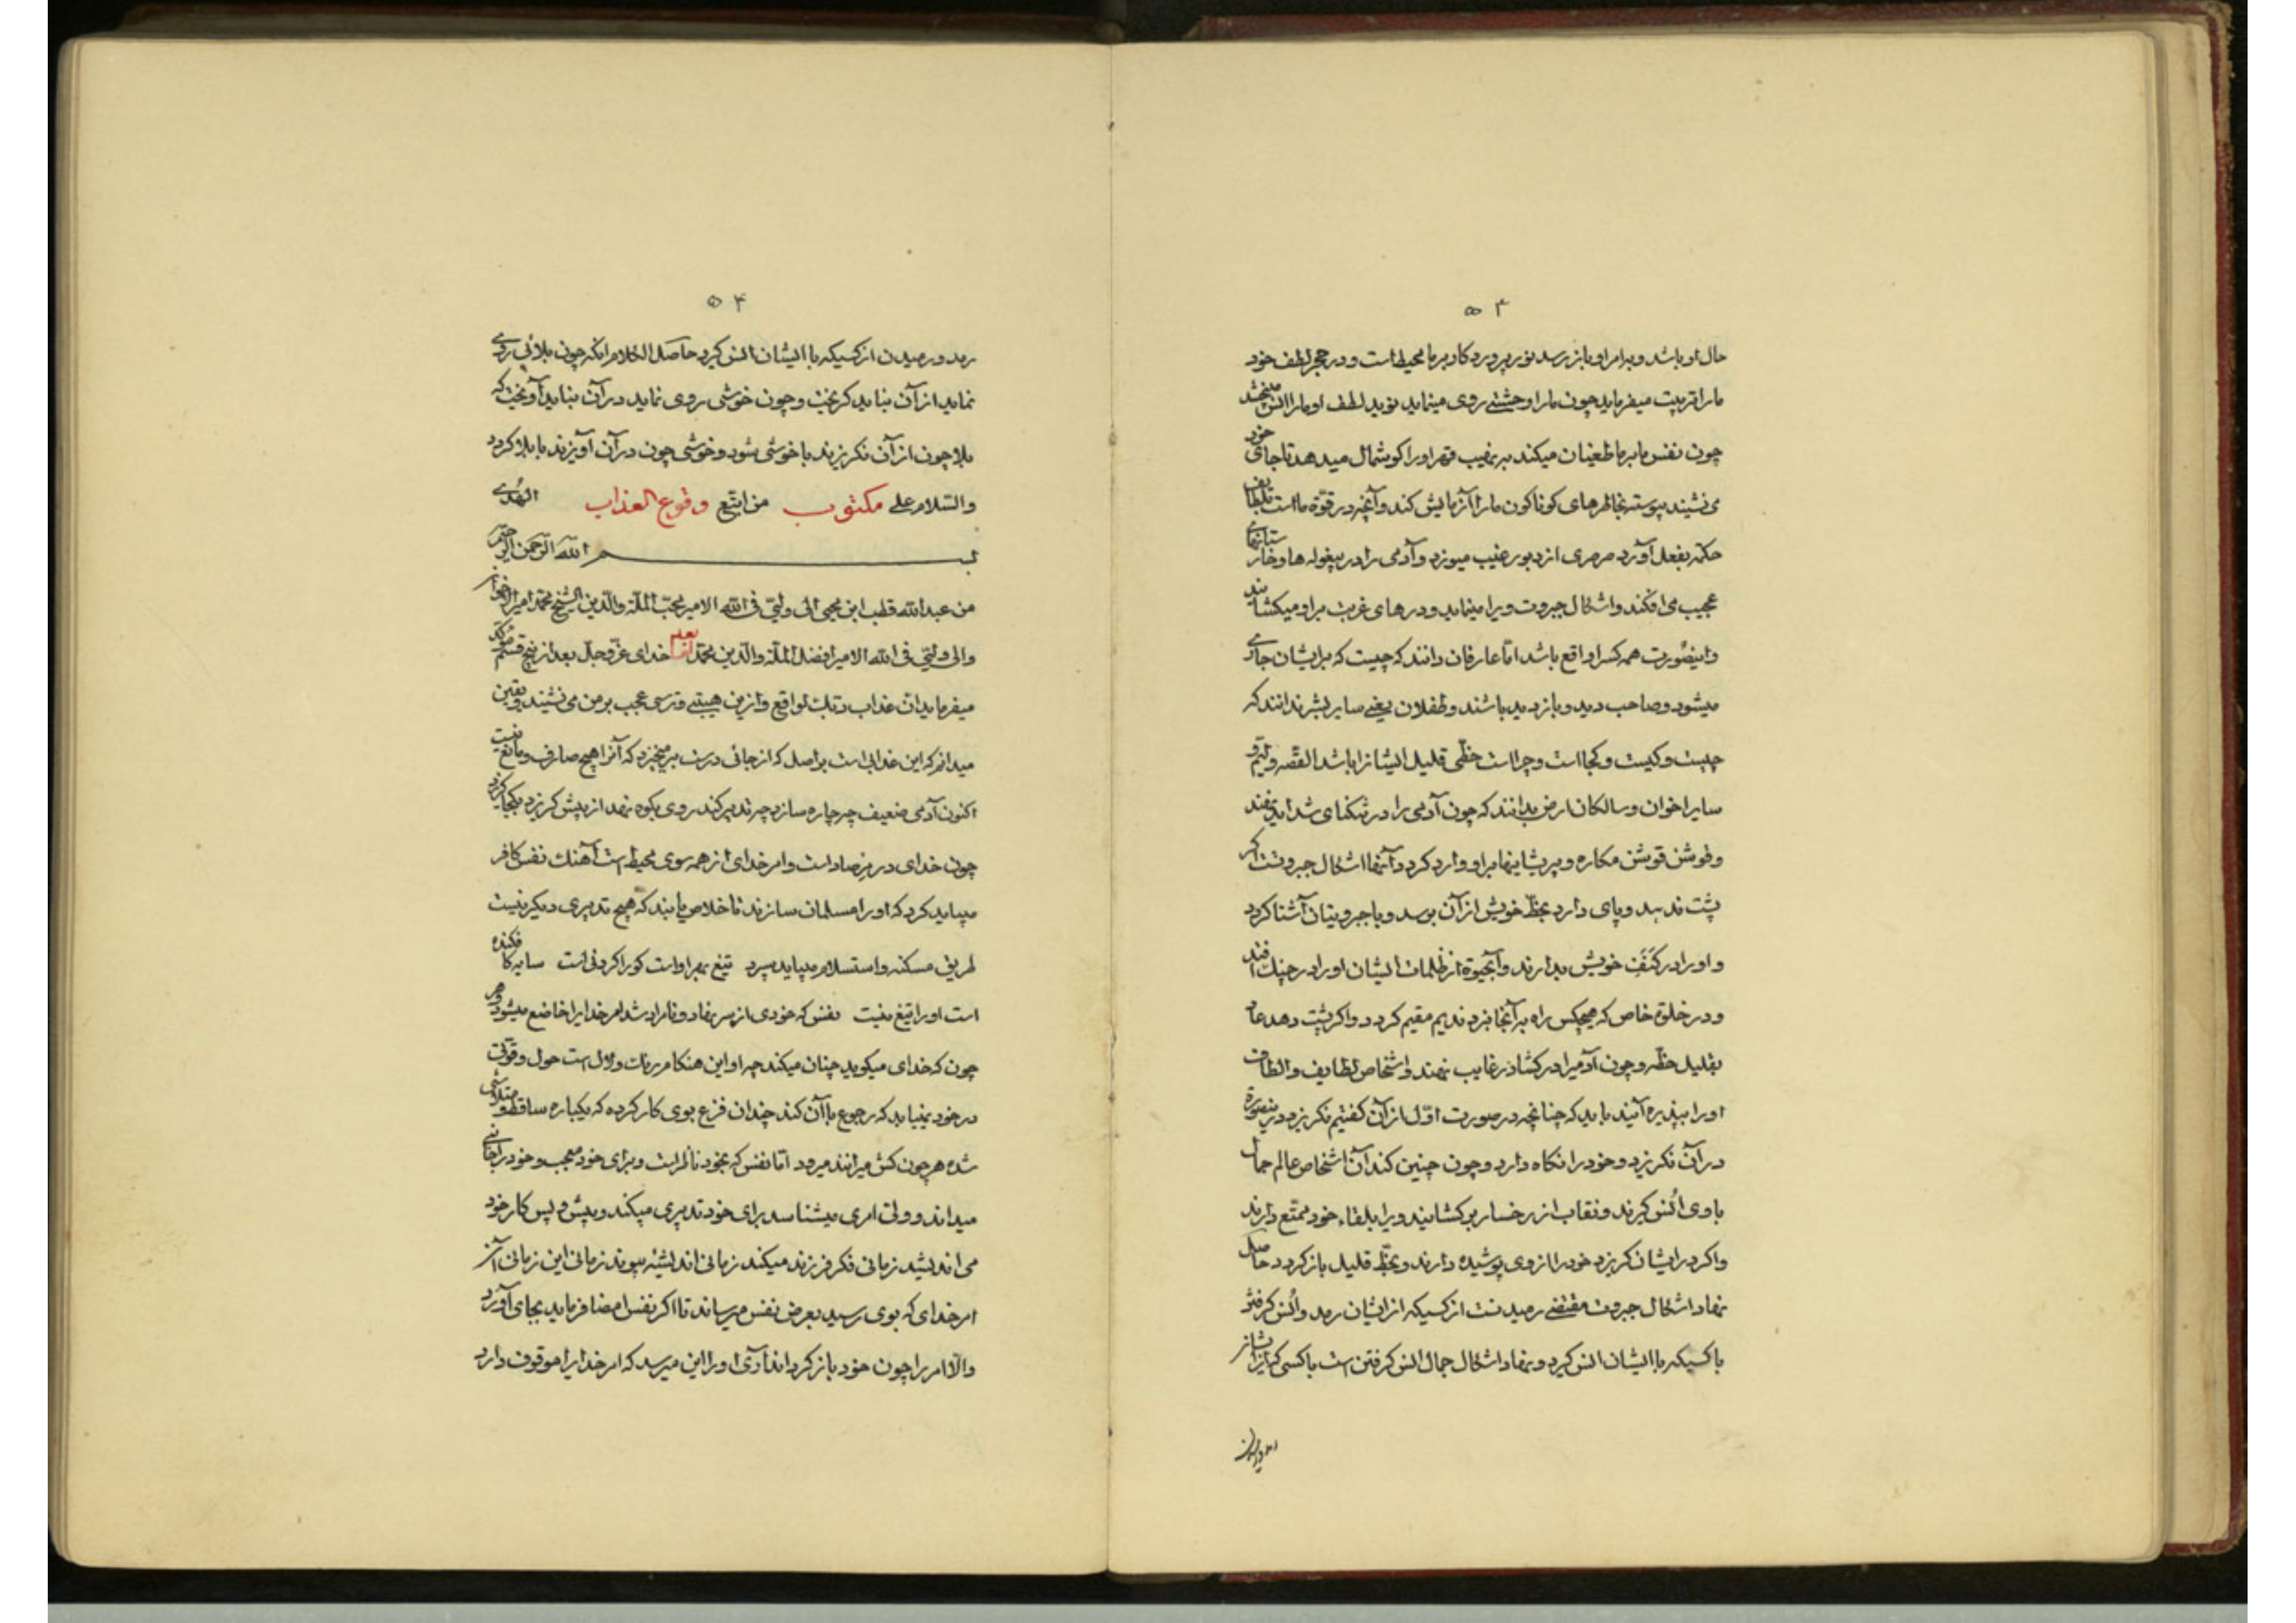 ۵۳
حال او باشد و بهرامر او باز رسد نور پروردگار بر ما محیط است و در حجر لطف خود
ما را تربیت میفرماید چون ما را وحشتی روی مینماید نوید لطف او ما را انس میبخشد
چون نفس ما بر ما طغیان میکند بر نهیب قهر او را کوشمال میدهد تا جای خود
می نشیند پیوسته بخاطرهای کوناکون ما را آزمایش کند و آنچه در قوّة ما است بلطایف
حکمة بفعل آورد صرصری از دبور غیب میوزد و آدمی را در بیغوله ها و خارستانهای
عجیب می افکند و اشکال جبروت ویرا مینماید و درهای غربت بر او میکشایند
و اینصورت همه کس را واقع باشد امّا عارفان دانند که چیست که بر ایشان جاری
میشود و صاحب دید و بازدید باشند و طفلان یعنی سایر بشر ندانند که
چیست و کیست و کجا است و چرا است حظّی قلیل ایشانرا باشد القصّه
سایر اخوان و سالکان ارض بدانند که چون آدمی را در تنکنای شداید نهند
و قوشن قوشن مکاره و پریشانیها بر او وارد کردد آنها اشکال جبروتست اکر
پشت ندهد و پای دارد بحظّ خویش از آن برسد و با جبروتیان آشنا کردد
و او را در کَنَفِ خویش بدارند و آبحیوة از ظلمات ایشان او را در چنک افتد
و در خلوة خاص که هیچکس راه بر آنجا نبرد ندیم مقیم کردد و اکر پشت دهد عاد
بقلیل حظّه و چون آدمیرا در کشاد رغایب نهند و اشخاص لطایف و الطاف
او را پذیره آیند باید که چنانچه در صورت اوّل از آن کفتیم نکریزد درینصورة
در آن نکریزد و خود را نکاه دارد و چون چنین کند آن اشخاص عالم جمال
با وی اُنس کیرند و نقاب از رخسار برکشایند و ویرا بلقاء خود ممتّع دارند
و اکر در ایشان کریزد خود را از وی پوشیده دارند و بحظّ قلیل باز کردد حاصل
نهاد اشکال جبروت مقتضی رمیدنست از کسیکه از ایشان رمد و اُنس کرفتن
با کسیکه با ایشان انس کیرد و نهاد اشکال جمال انس کرفتن است با کسی که از ایشان
۵۴
رمد و رمیدن از کسیکه با ایشان انس کیرد حاصل الکلام آنکه چون بلائی روی
نماید از آن نباید کریخت و چون خوشی روی نماید در آن نباید آویخت که
بلا چون از آن نکریزند با خوشی شود و خوشی چون در آن آویزند با بلا کردد
والسّلام علی مکتوب من اتّبع وقوع العذاب الهُدی
بسم اللّه الرّحمن الرّحیم
من عبد اللّه قطب ابن محیی الی ولیّی فی اللّه الامیر محبّ الملّة والدّین الشیخ محمّد امیر
والی ولیّی فی اللّه الامیر افضل الملّة والدّین محمّد خدای عزّ وجلّ بعد از پنج قسم مؤکّد
میفرماید انّ عذاب ربّک لواقع و ازین هیبتی و ترسی عجب بر من می نشیند و یقین
میدانم که این عذابی است بر اصل که از جائی درست برمیخیزد که آنرا هیچ صارف و مانع نیست
اکنون آدمی ضعیف چه چاره سازد چه تدبیر کند روی بکوه نهد از پیش کریزد بکجا کریزد
چون خدای در مرصاد است و امر خدای از همه سوی محیط است آهنک نفس کافر
میباید کرد که او را مسلمان سازند تا خلاص یابند که هیچ تدبیری دیکر نیست
طریق مسکنه و استسلام میباید سپرد تیغ بهر او است کورا کردنی است سایه کافکنده
است او را تیغ نیست نفس که خودی از سر نهاد و نامراد شد امر خدایرا خاضع میشود و هر
چون که خدای میکوید چنان میکند چه او این هنکام مرمات و لال است حول و قوّتی
در خود نمییابد که رجوع با آن کند چندان فزع بوی کار کرده که یکباره ساقط و متلاشی
شده هر چون کش میرانند میرود امّا نفس که بخود ناظر است و برای خود معجب و خود را جانی
میداند و ولیّ امری میشناسد برای خود تدبیری میکند و پیش و پس کار خود
می اندیشد زمانی فکر فرزند میکند زمانی اندیشهٔ پیوند زمانی این زمانی آن
امر خدای که بوی رسید بعرض نفس میرساند تا اکر نفس امضا فرماید بجای آورد
والّا امر را چون خود باز کرداند آری او را این میرسد که امر خدایرا موقوف دارد